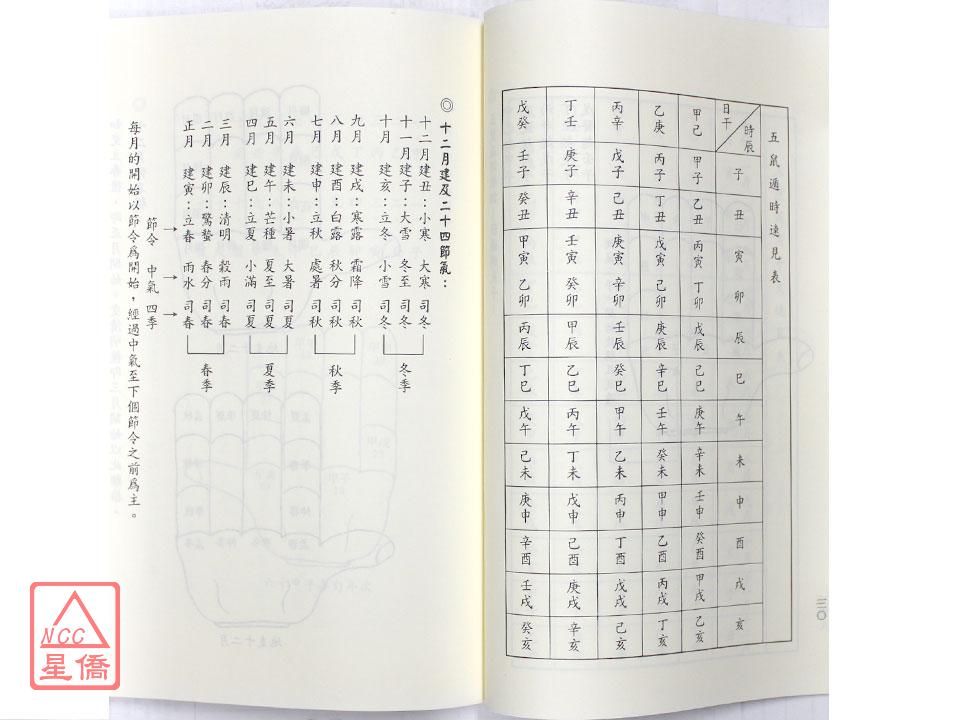 五鼠遁時速見表
日干 時辰 子 丑 寅 卯 辰 巳 午 未 申 酉 戌 亥
甲己 甲子 乙丑 丙寅 丁卯 戊辰 己巳 庚午 辛未 壬申 癸酉 甲戌 乙亥
乙庚 丙子 丁丑 戊寅 己卯 庚辰 辛巳 壬午 癸未 甲申 乙酉 丙戌 丁亥
丙辛 戊子 己丑 庚寅 辛卯 壬辰 癸巳 甲午 乙未 丙申 丁酉 戊戌 己亥
丁壬 庚子 辛丑 壬寅 癸卯 甲辰 乙巳 丙午 丁未 戊申 己酉 庚戌 辛亥
戊癸 壬子 癸丑 甲寅 乙卯 丙辰 丁巳 戊午 己未 庚申 辛酉 壬戌 癸亥
◎十二月建及二十四節氣：
十二月建丑：小寒 大寒 司冬
十一月建子：大雪 冬至 司冬
十月 建亥：立冬 小雪 司冬
冬季
九月 建戌：寒露 霜降 司秋
八月 建酉：白露 秋分 司秋
七月 建申：立秋 處暑 司秋
秋季
六月 建未：小暑 大暑 司夏
五月 建午：芒種 夏至 司夏
四月 建巳：立夏 小滿 司夏
夏季
三月 建辰：清明 穀雨 司春
二月 建卯：驚蟄 春分 司春
正月 建寅：立春 雨水 司春
春季
節令 中氣 四季
每月的開始以節令為開始，經過中氣至下個節令之前為主。
NCC
星僑